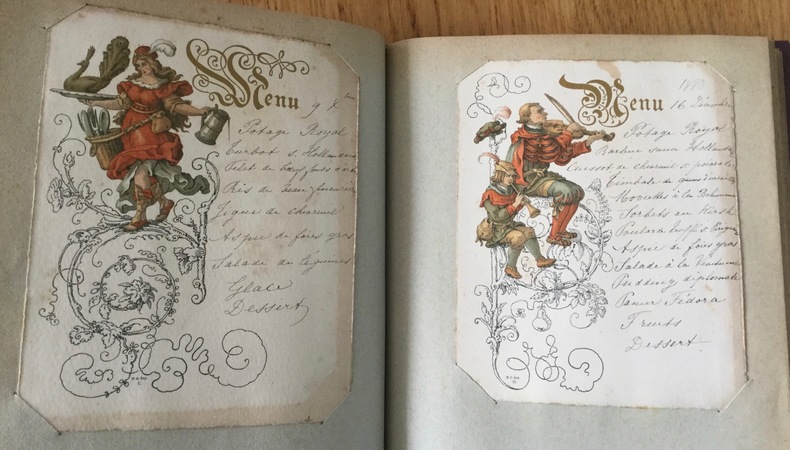 Menu 9 X
Potage Royal
Turbot s. Hollandaise
Filet de bœuf
Ris de veau financière
Gigue de chevreuil
Aspic de foies gras
Salade de légumes
Glace
Dessert
Menu 16 Décembre
Potage Royal
Barbue sauce Hollandaise
Cuissot de chevreuil s. poivrade
Timbale de
à la Bohémienne
Sorbets au Kirsch
Poularde truffée Périgueux
Aspic de foies gras
Salade à la
Pudding diplomate
Fédora
Fruits
Dessert